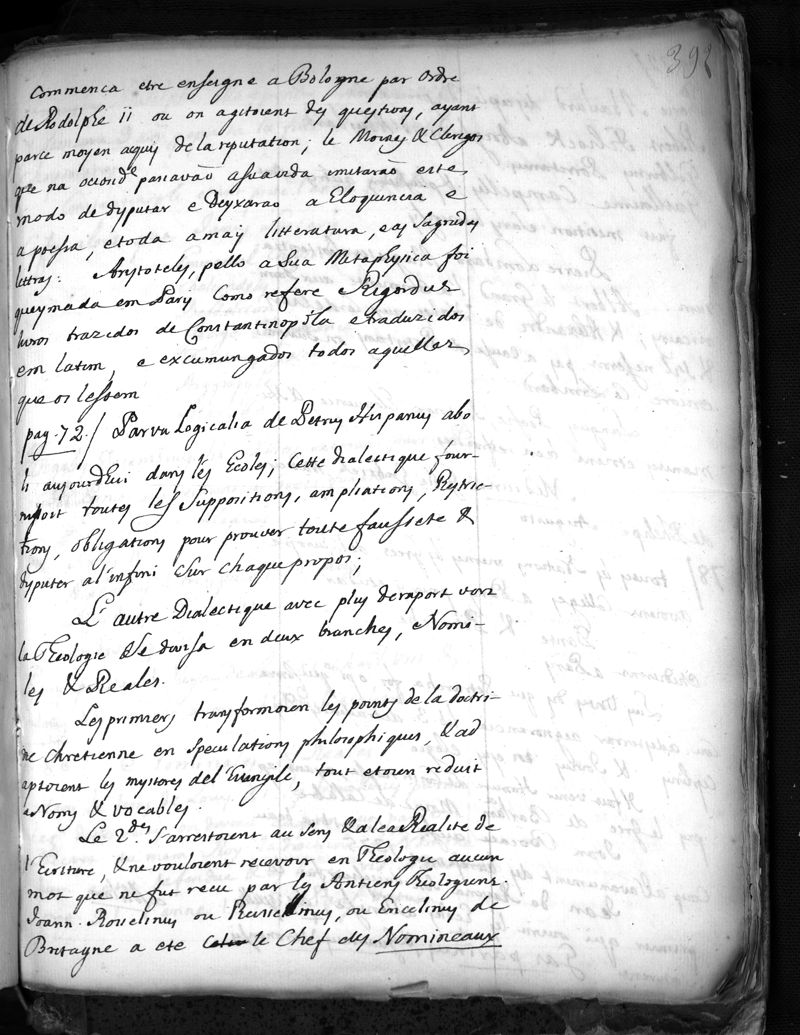 392
Commenca etre enseigne a Bologne par ordre
de Rodolphe ii ou on agitoient des questions, ayant
par ce moyen aquis de la reputation; le Moines & Clerigos
que na ocidde passavaõ a suavida imitaraõ este
modo de disputar e Deyxaraõ a Eloquencia e
a poesia, e toda a mais litteratura, e as sagradas
letras. Aristoteles, pello a sua Metaphysica foi
queymada em Paris como refere Rigordus
livros trazidos de Constantinopla e traduzidos
em latim, e excumungados todos aquelles
que os lessem
pag. 72./ Parva Logicalia de Petrus Hispanus abo
li aujourdhui dans les Ecoles; Cette dialectique four-
nissoit toutes les Suppositions, ampliations, Restric-
tions, obligations pour prouver toute faussete &
disputer a l'infini sur chaque propos;
L'autre Dialectique avec plus de raport vers
la Theologie se divisa en deux branches, Nomi-
les & Reales.
Les primiers transformoien les points de la doctri-
ne chretienne en speculations philosophiques, & ad
aptoient les mysteres del Evangile, tout etoien reduit
a Noms & vocables.
Le 2.des s'arrestoient au sens & a lea Realité de
l'Ecriture, & ne vouloient recevoir en Theologie aucun
mot que ne fut recu par les Antiens Theologiens.
Joann. Roscelinus ou Russelinus, ou Encelinus de
Bretagne a ete le Chef des Nomineaux